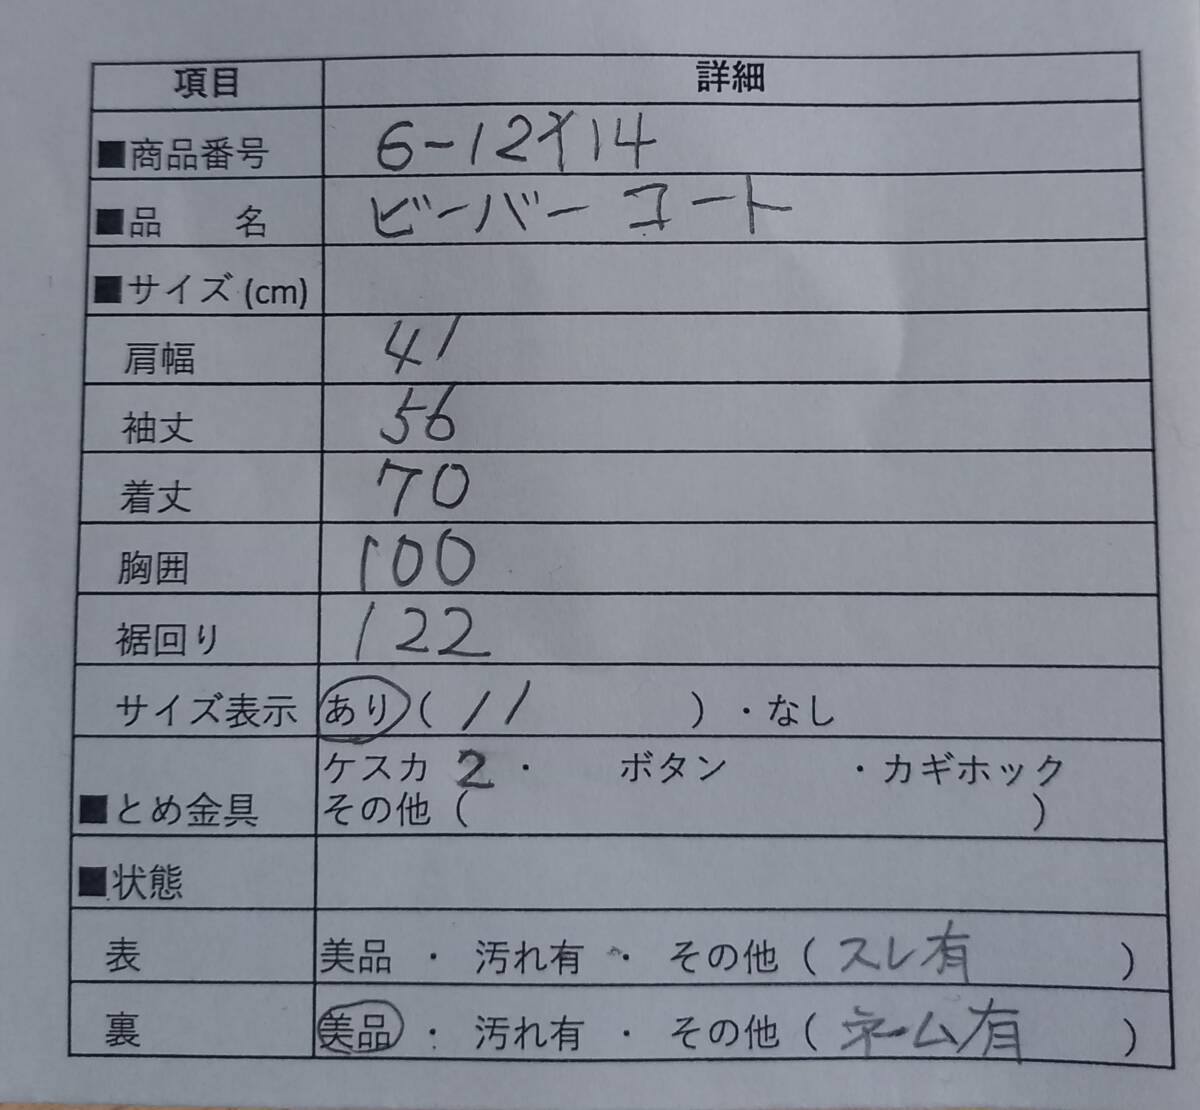 項目 詳細
■商品番号 6-12イ14
■品 名 ビーバー コート
■サイズ (cm)
肩幅 41
袖丈 56
着丈 70
胸囲 100
裾回り 122
サイズ表示 あり ( 11 ) ・なし
ケスカ 2 ・ ボタン ・カギホック
■とめ金具 その他 ( )
■状態
表 美品 ・ 汚れ有 ・ その他 ( スレ有 )
裏 美品 ・ 汚れ有 ・ その他 ( ネーム有 )